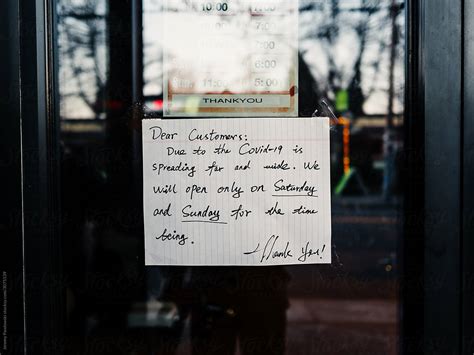 10:00
7:00
7:00
6:00
5:00
THANKYOU
Dear Customers:
Due to the Covid-19 is
spreading far and wide. We
will open only on Saturday
and Sunday for the time
being.
Thank You!